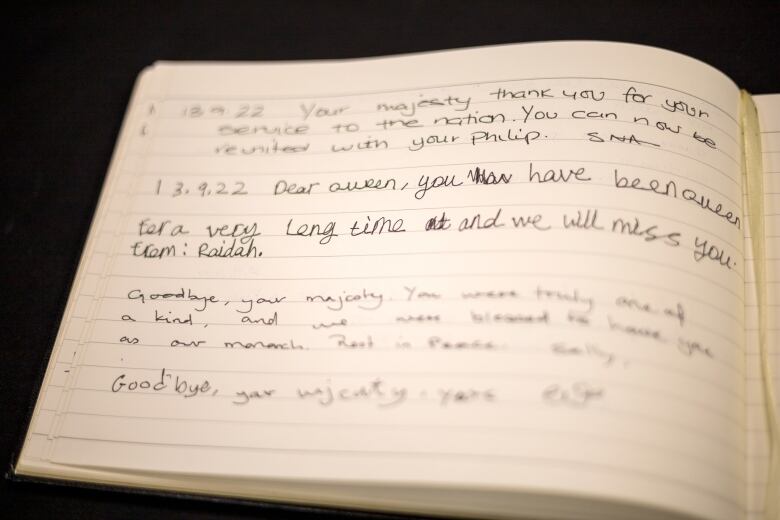 13.9.22 Your majesty thank you for your
service to the nation. You can now be
reunited with your Philip. SNA
13.9.22 Dear queen, you have been queen
for a very long time and we will miss you.
from: Raidah.
Goodbye, your majesty. You were truly one of
a kind, and we were blessed to have you
as our monarch. Rest in Peace. Sally.
Goodbye, your majesty. yours